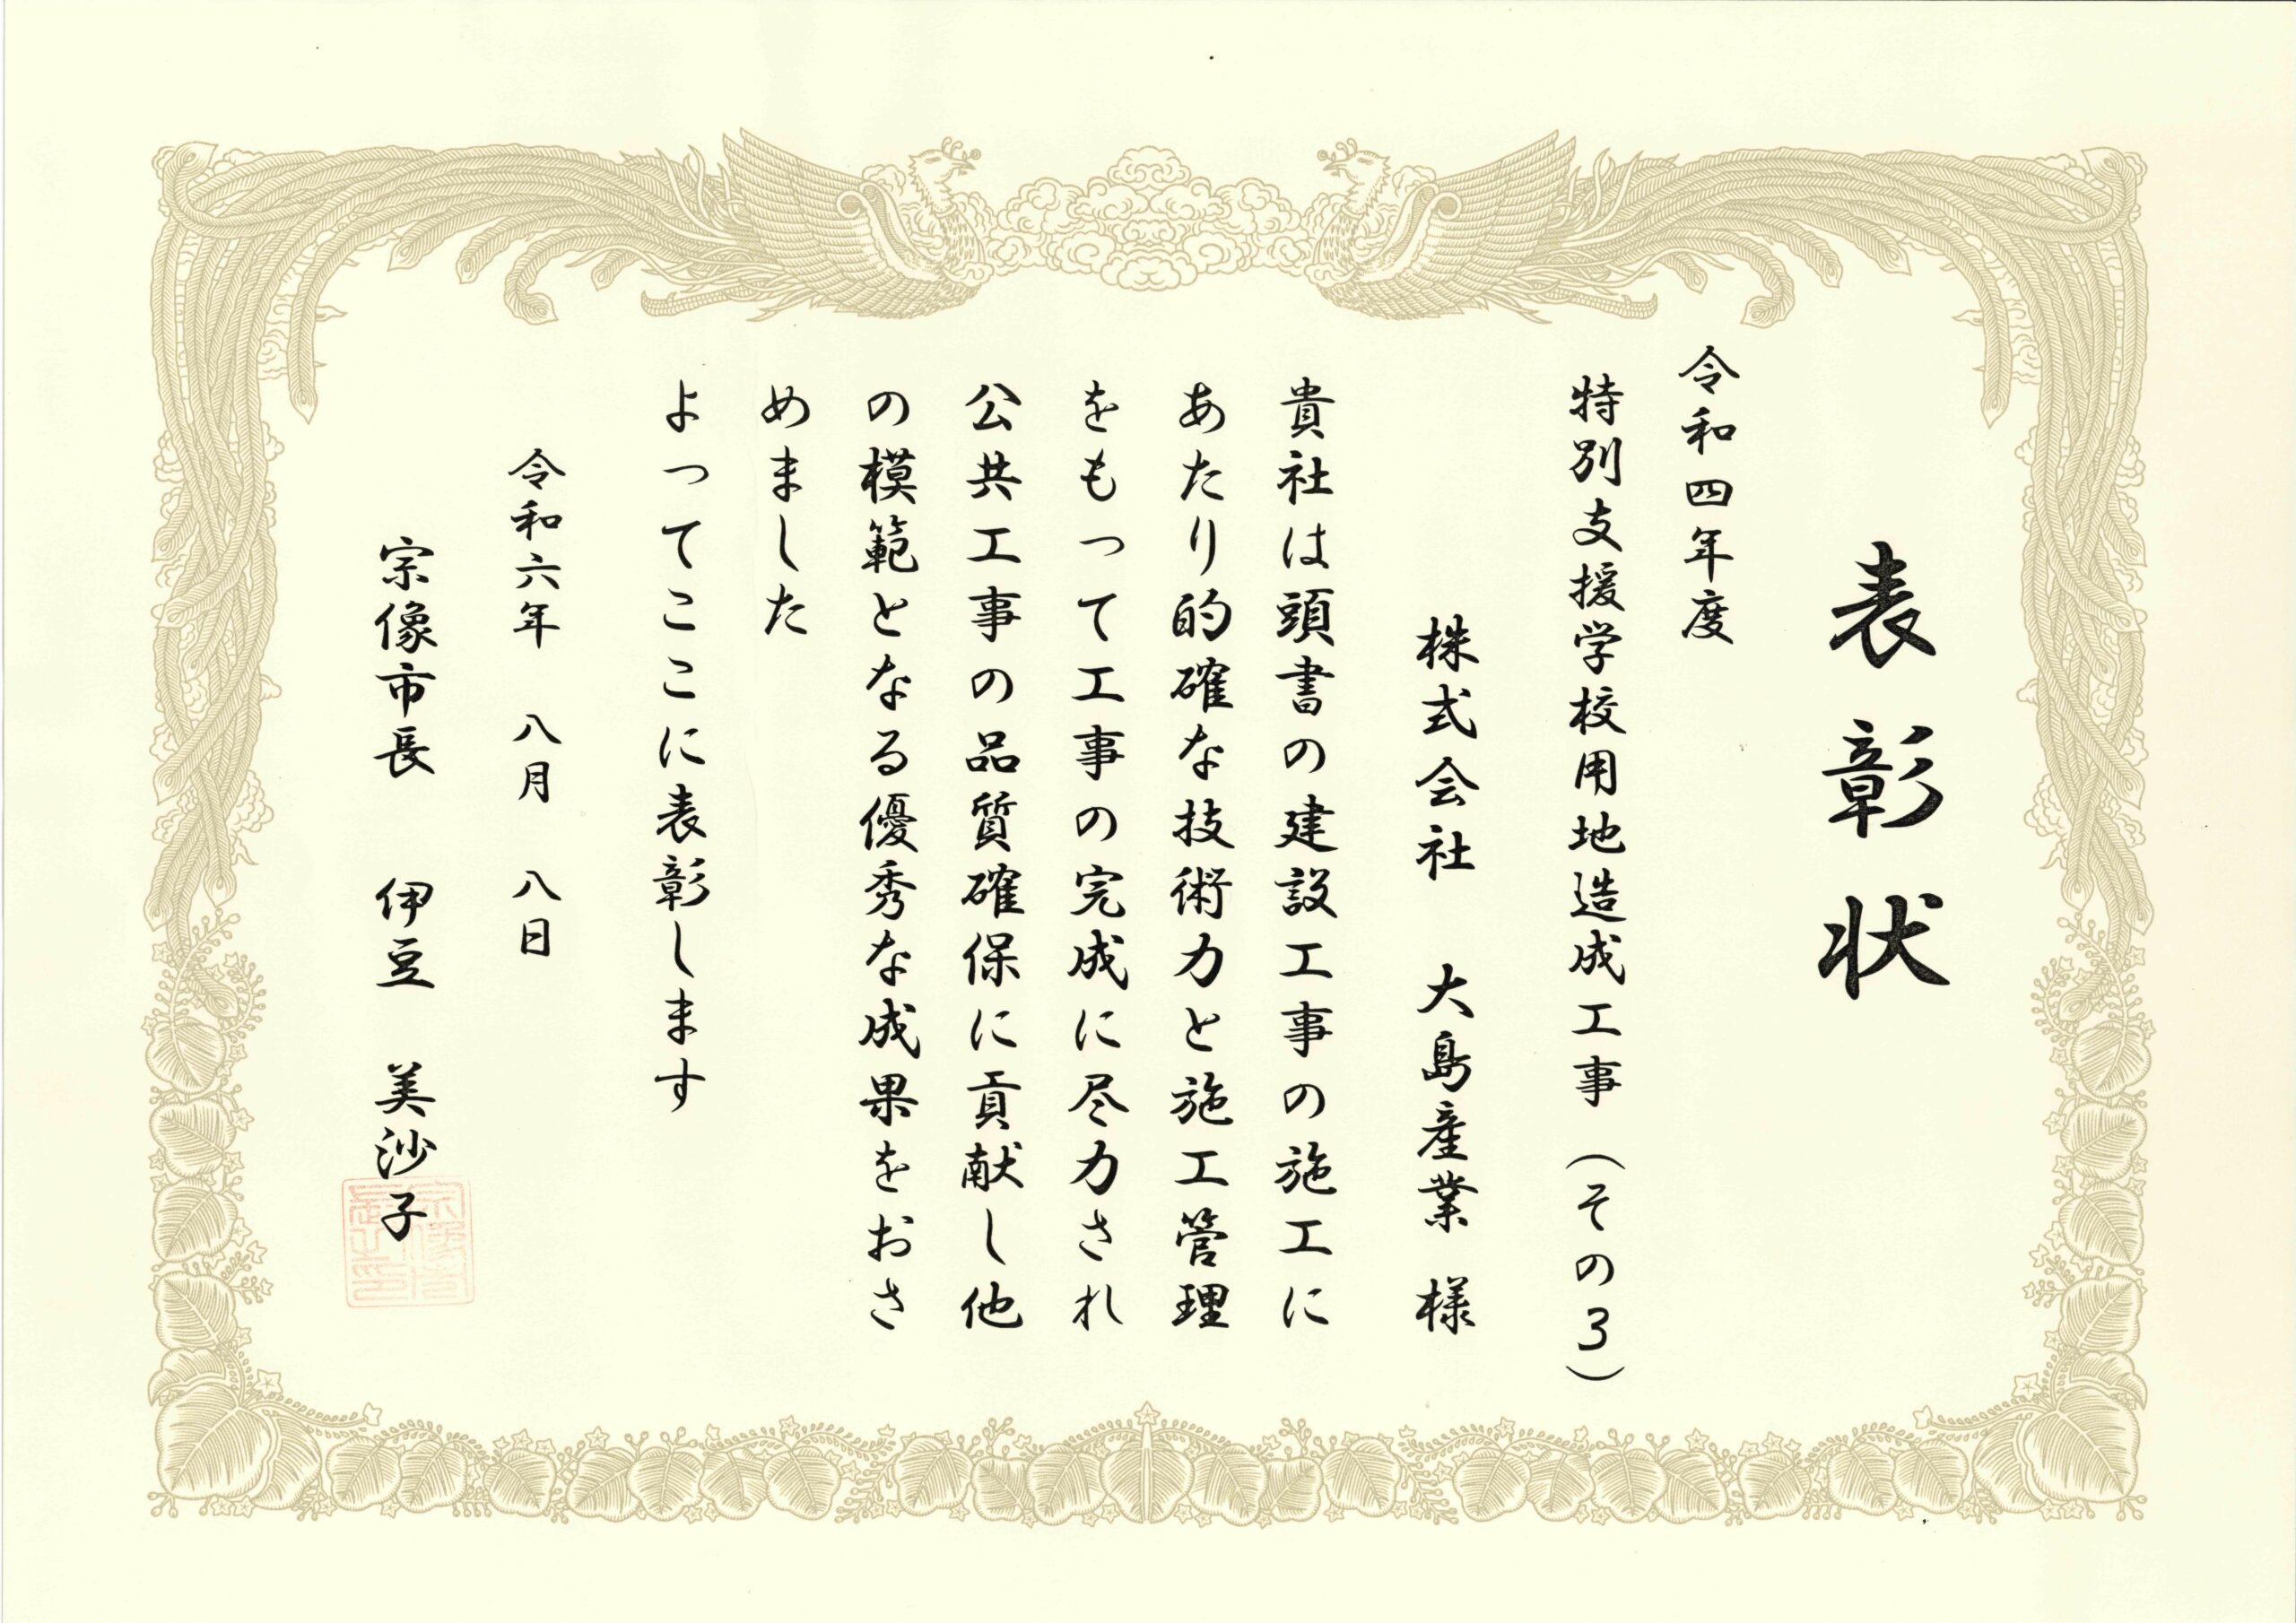 表彰状
令和四年度
特別支援学校用地造成工事（その３）
株式会社　大島産業　様
貴社は頭書の建設工事の施工に
あたり的確な技術力と施工管理
をもって工事の完成に尽力され
公共工事の品質確保に貢献し他
の模範となる優秀な成果をおさ
めました
よってここに表彰します
令和六年　八月　八日
宗像市長　伊豆　美沙子
宗像市
長之印